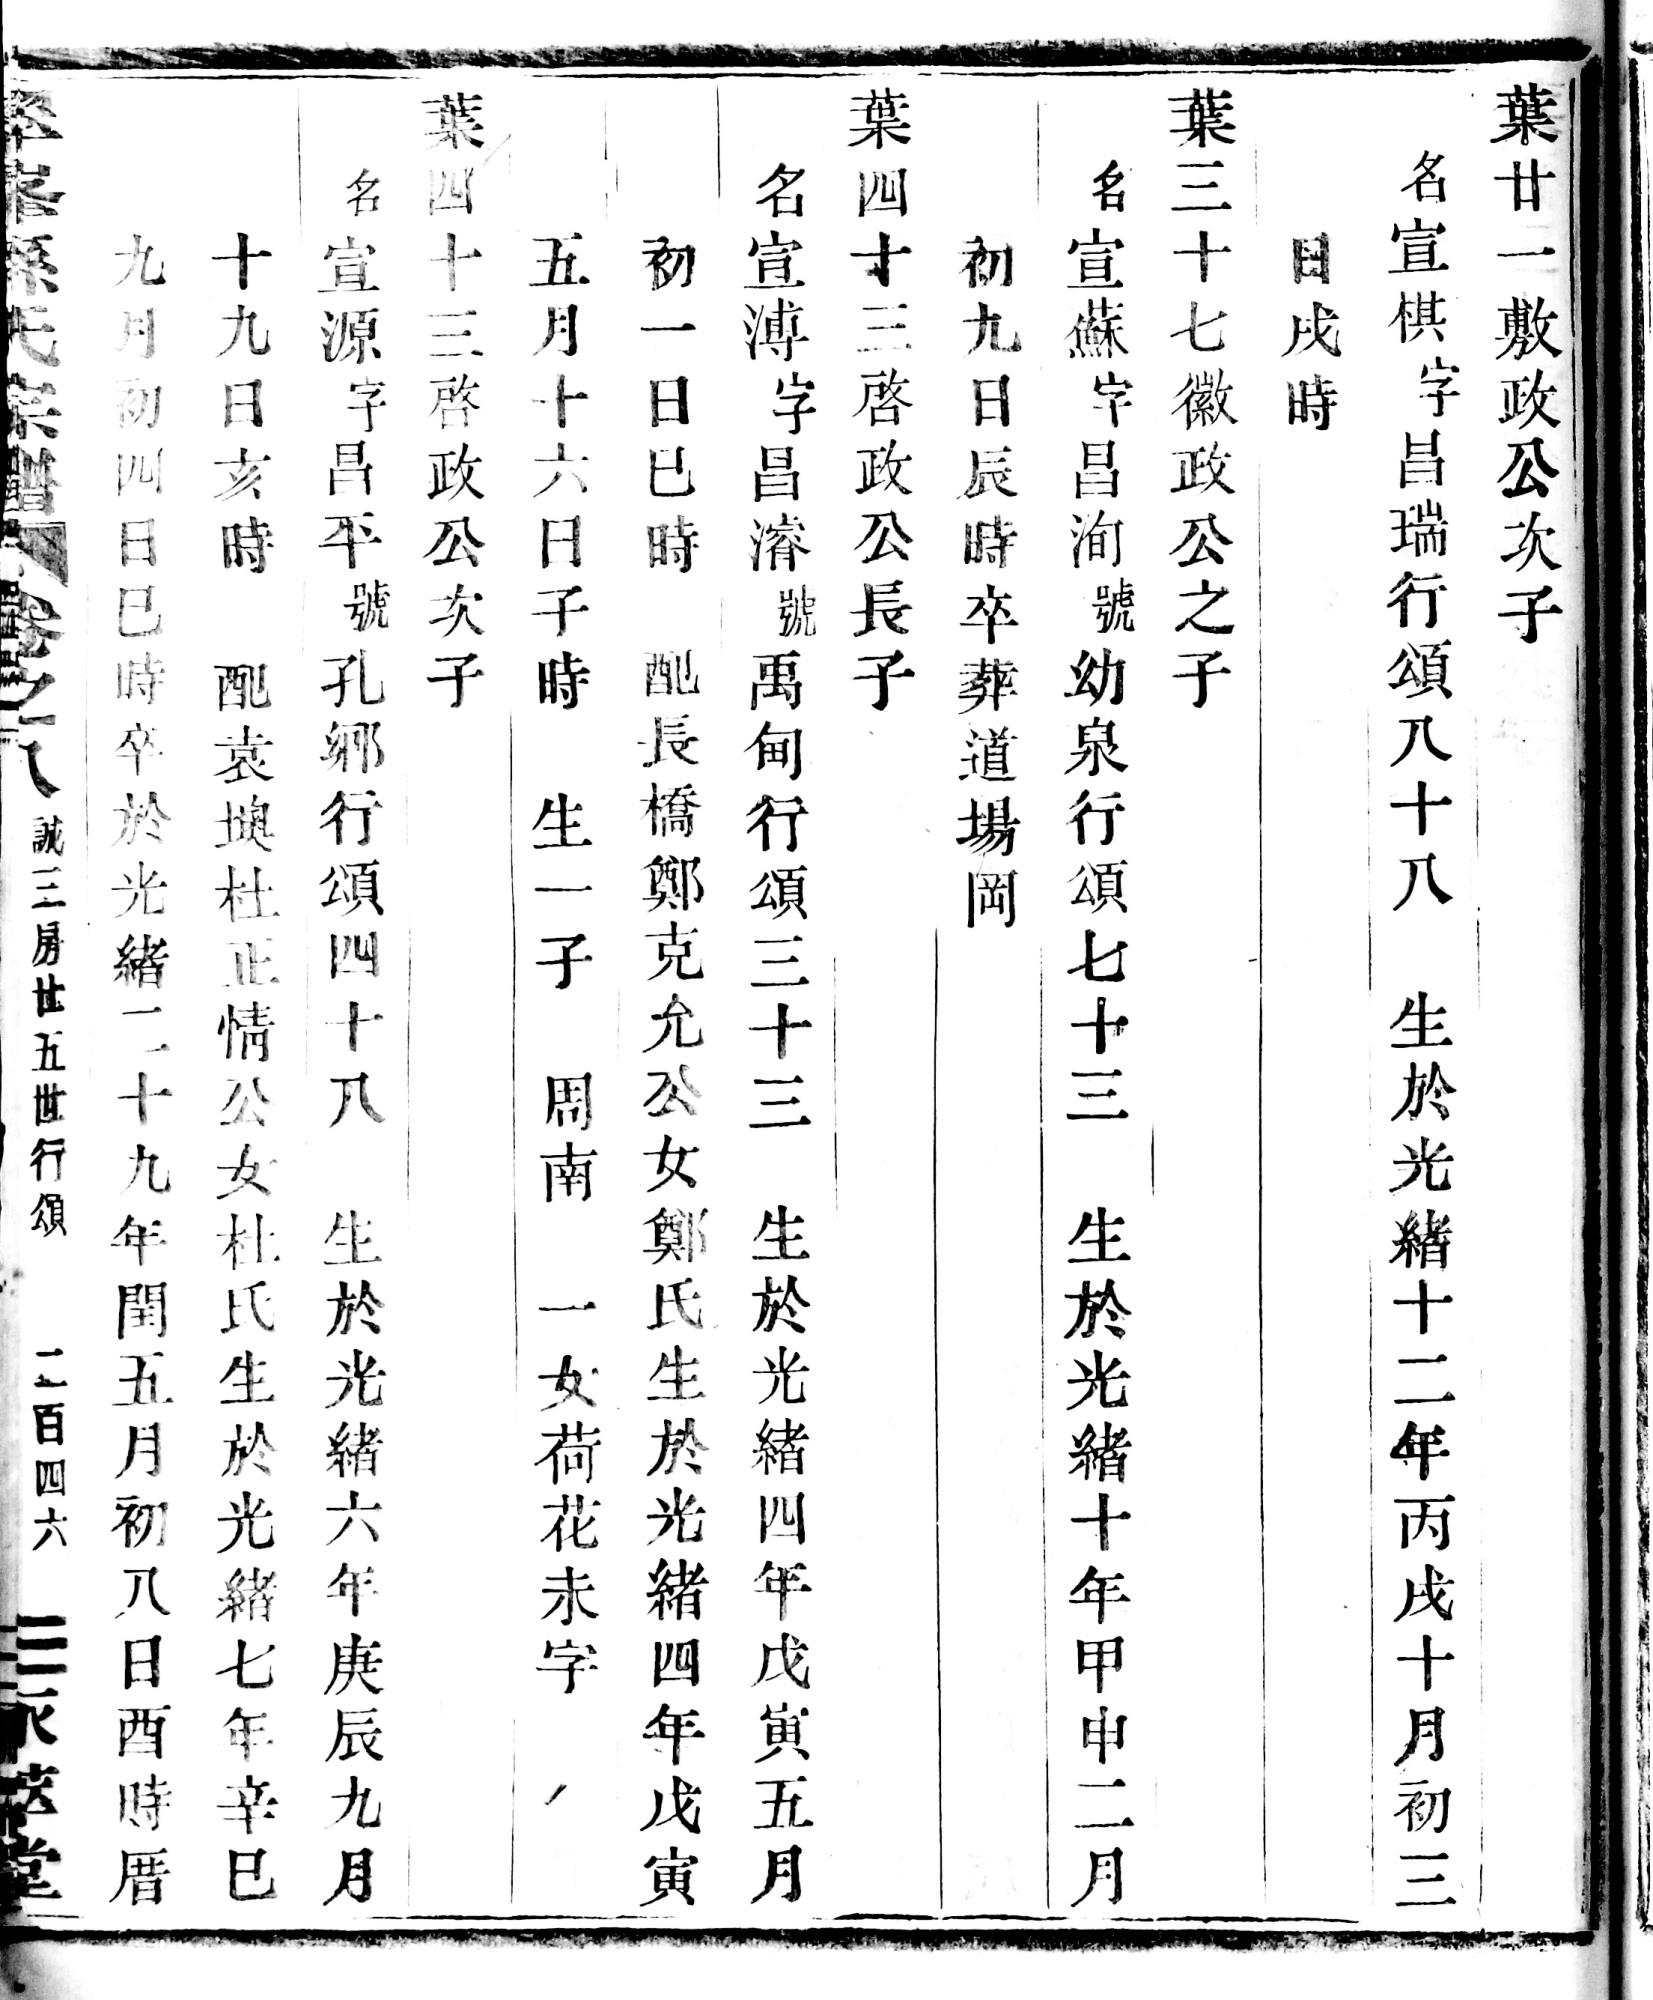 葉廿一敷政公次子
名宣棋字昌瑞行頌八十八　生於光緒十二年丙戌十月初三
日戌時
葉三十七徽政公之子
名宣蘇字昌洵號幼泉行頌七十三　生於光緒十年甲申二月
初九日辰時卒葬道場岡
葉四十三啓政公長子
名宣溥字昌濬號禹甸行頌三十三　生於光緒四年戊寅五月
初一日巳時　配長橋鄭克允公女鄭氏生於光緒四年戊寅
五月十六日子時　生一子　周南　一女荷花未字
葉四十三啓政公次子
名宣源字昌平號孔鄉行頌四十八　生於光緒六年庚辰九月
十九日亥時　配袁墺杜正情公女杜氏生於光緒七年辛巳
九月初四日巳時卒於光緒二十九年閏五月初八日酉時厝
氏宗譜　卷之八　誠三房廿五世行頌　二百四六　堂